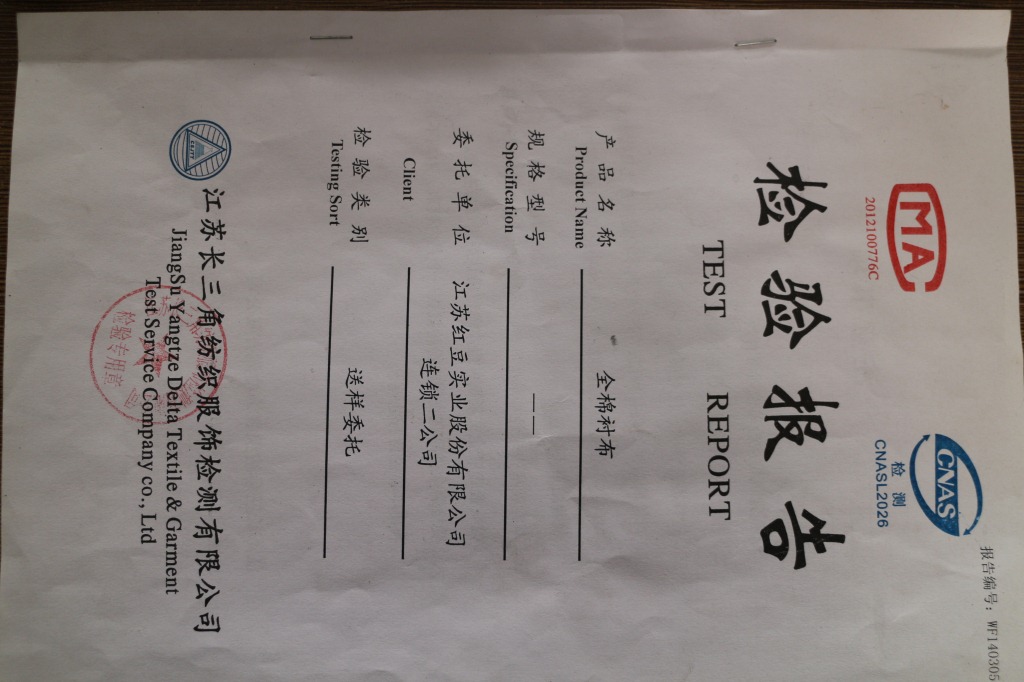 报告编号：WF140305
MA
2012100776C
CNAS
检测
CNASL2026
检验报告
TEST REPORT
产品名称 全棉衬布
Product Name
规格型号 ——
Specification
委托单位 江苏红豆实业股份有限公司
连锁二公司
Client
检验类别 送样委托
Testing Sort
江苏长三角纺织服饰检测有限公司
JiangSu Yangtze Delta Textile & Garment
Test Service Company co., Ltd
检验专用章